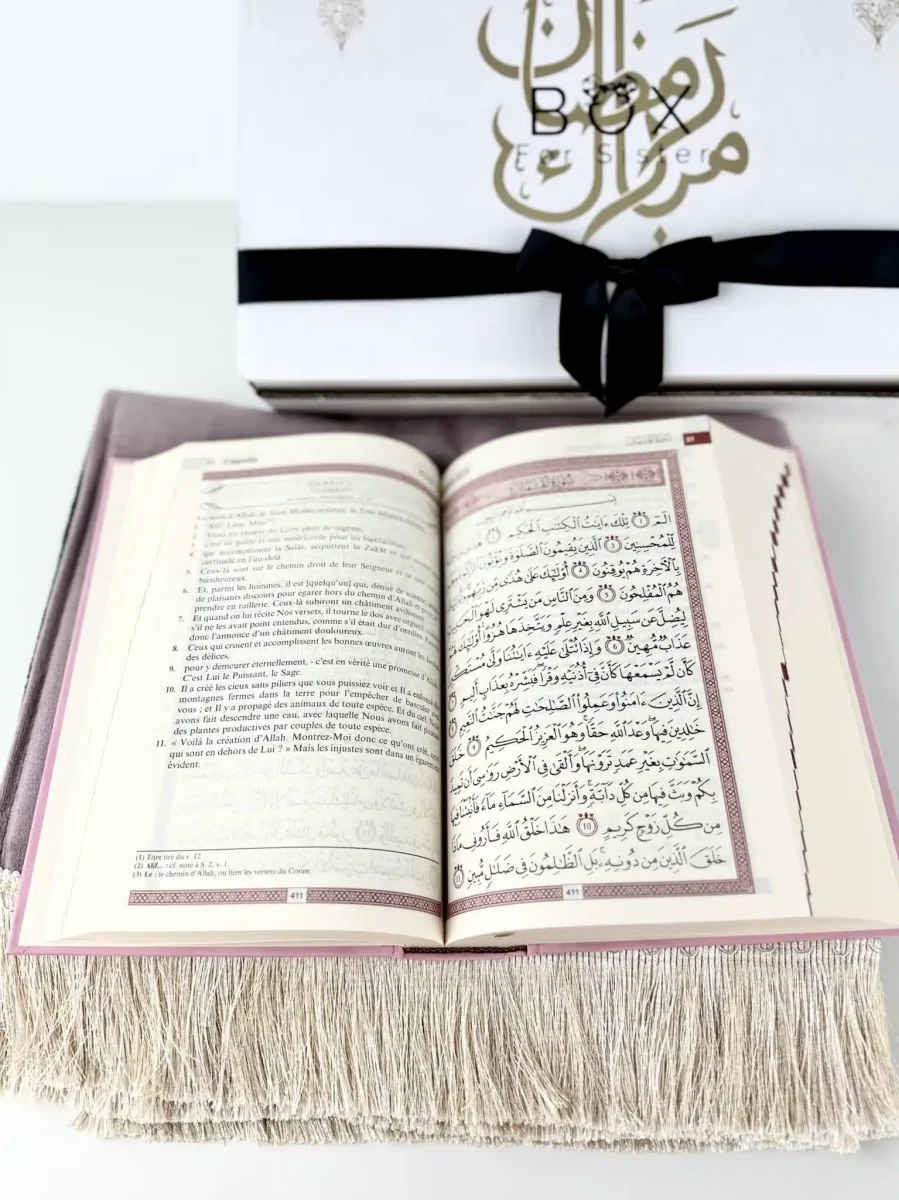 رمضان
مبارك
BOX
For Sister
5. Ceux-là sont sur le chemin droit de leur Seigneur et ce sont
bienheureux.
6. Et, parmi les hommes, il est [quelqu'un] qui, dénué de science,
de plaisants discours pour égarer hors du chemin d'Allah et pour
prendre en raillerie. Ceux-là subiront un châtiment avilissant.
7. Et quand on lui récite Nos versets, il tourne le dos avec orgueil,
s'il ne les avait point entendus, comme s'il était dur d'oreilles. Fais-
donc l'annonce d'un châtiment douloureux.
8. Ceux qui croient et accomplissent les bonnes œuvres auront les Jardins
des délices,
9. pour y demeurer éternellement, - c'est en vérité une promesse d'Allah.
C'est Lui le Puissant, le Sage.
10. Il a créé les cieux sans piliers que vous puissiez voir et Il a enfoncé
montagnes fermes dans la terre pour l'empêcher de basculer
vous ; et Il y a propagé des animaux de toute espèce. Et du ciel, Nous
avons fait descendre une eau, avec laquelle Nous avons fait pousser
des plantes productives par couples de toute espèce.
11. « Voilà la création d'Allah. Montrez-Moi donc ce qu'ont créé, ceux
qui sont en dehors de Lui ? » Mais les injustes sont dans un égarement
évident.
(1) Titre tiré du v. 12.
(2) Alif... : cf. note à S. 2, v. 1.
(3) Le : le chemin d'Allah, ou bien les versets du Coran.
411
31
سُورَةُ لُقْمَان
الٓمٓ ١ تِلْكَ ءَايَٰتُ ٱلْكِتَٰبِ ٱلْحَكِيمِ ٢
لِّلْمُحْسِنِينَ ٣ ٱلَّذِينَ يُقِيمُونَ ٱلصَّلَوٰةَ وَيُؤْتُونَ
بِٱلْءَاخِرَةِ هُمْ يُوقِنُونَ ٤ أُوْلَٰٓئِكَ عَلَىٰ هُدًى مِّن رَّبِّهِمْ
هُمُ ٱلْمُفْلِحُونَ ٥ وَمِنَ ٱلنَّاسِ مَن يَشْتَرِى لَهْوَ
لِيُضِلَّ عَن سَبِيلِ ٱللَّهِ بِغَيْرِ عِلْمٍ وَيَتَّخِذَهَا هُزُوًا أُوْلَٰٓئِكَ
عَذَابٌ مُّهِينٌ ٦ وَإِذَا تُتْلَىٰ عَلَيْهِ ءَايَٰتُنَا وَلَّىٰ مُسْتَكْبِرًا
كَأَن لَّمْ يَسْمَعْهَا كَأَنَّ فِىٓ أُذُنَيْهِ وَقْرًا فَبَشِّرْهُ بِعَذَابٍ أَلِيمٍ
إِنَّ ٱلَّذِينَ ءَامَنُوا۟ وَعَمِلُوا۟ ٱلصَّٰلِحَٰتِ لَهُمْ جَنَّٰتُ ٱلنَّعِيمِ
خَٰلِدِينَ فِيهَا وَعْدَ ٱللَّهِ حَقًّا وَهُوَ ٱلْعَزِيزُ ٱلْحَكِيمُ ٩ خَلَقَ
ٱلسَّمَٰوَٰتِ بِغَيْرِ عَمَدٍ تَرَوْنَهَا وَأَلْقَىٰ فِى ٱلْأَرْضِ رَوَٰسِىَ أَن تَمِيدَ
بِكُمْ وَبَثَّ فِيهَا مِن كُلِّ دَآبَّةٍ وَأَنزَلْنَا مِنَ ٱلسَّمَآءِ مَآءً فَأَنۢبَتْنَا فِيهَا
مِن كُلِّ زَوْجٍ كَرِيمٍ ١٠ هَٰذَا خَلْقُ ٱللَّهِ فَأَرُونِى مَاذَا
خَلَقَ ٱلَّذِينَ مِن دُونِهِۦ بَلِ ٱلظَّٰلِمُونَ فِى ضَلَٰلٍ مُّبِينٍ ١١
411